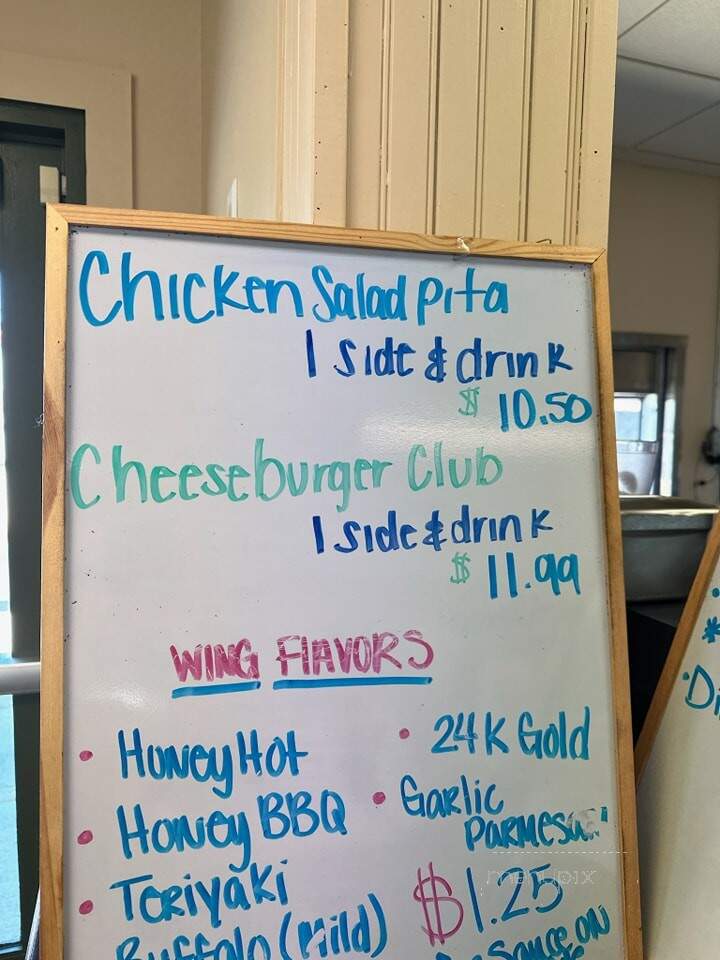 Chicken Salad Pita
1 Side & drink
$ 10.50
Cheeseburger Club
1 side & drink
$ 11.99
WING FlAVORS
• Honey Hot
• Honey BBQ
• Teriyaki
Buffalo (Mild)
• 24K Gold
• Garlic
Parmesan
$1.25
Sauce on
menupix